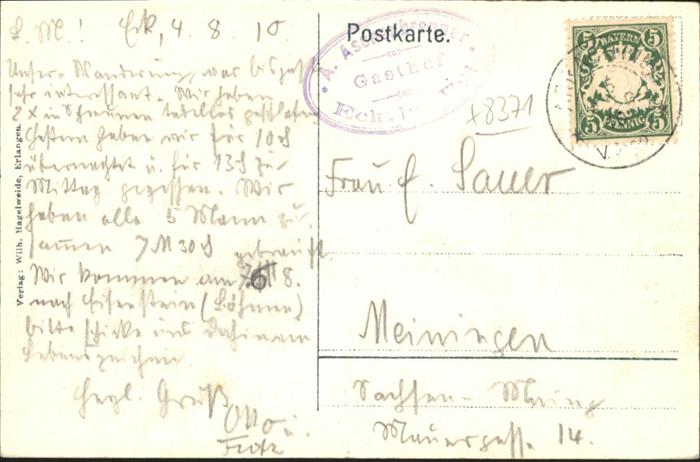 L. M.! Eck, 4. 8. 10.
Unsere Wanderung war bis jetzt
sehr interessant. Wir haben
2 x in Scheunen tadellos geschlafen
Gestern haben wir für 10 ₰
übernachtet u. für 13 ₰ zu
Mittag gegessen. Wir
haben alle 5 Mann zu-
sammen 7 M 30 ₰ gebraucht
Wir kommen am 6. 8.
nach Eisenstein (Böhmen)
bitte schicke uns dahin ein
Lebenszeichen.
Herzl. Gruß
Otto u.
Fritz
Verlag: Wilh. Hagelweide, Erlangen.
Postkarte.
Gasthof
Eck
+8371
BAYERN
5 5
5 PFENNIG 5
Frau E. Sauer
Meiningen
Sachsen-Meining
Mauergasse 14.